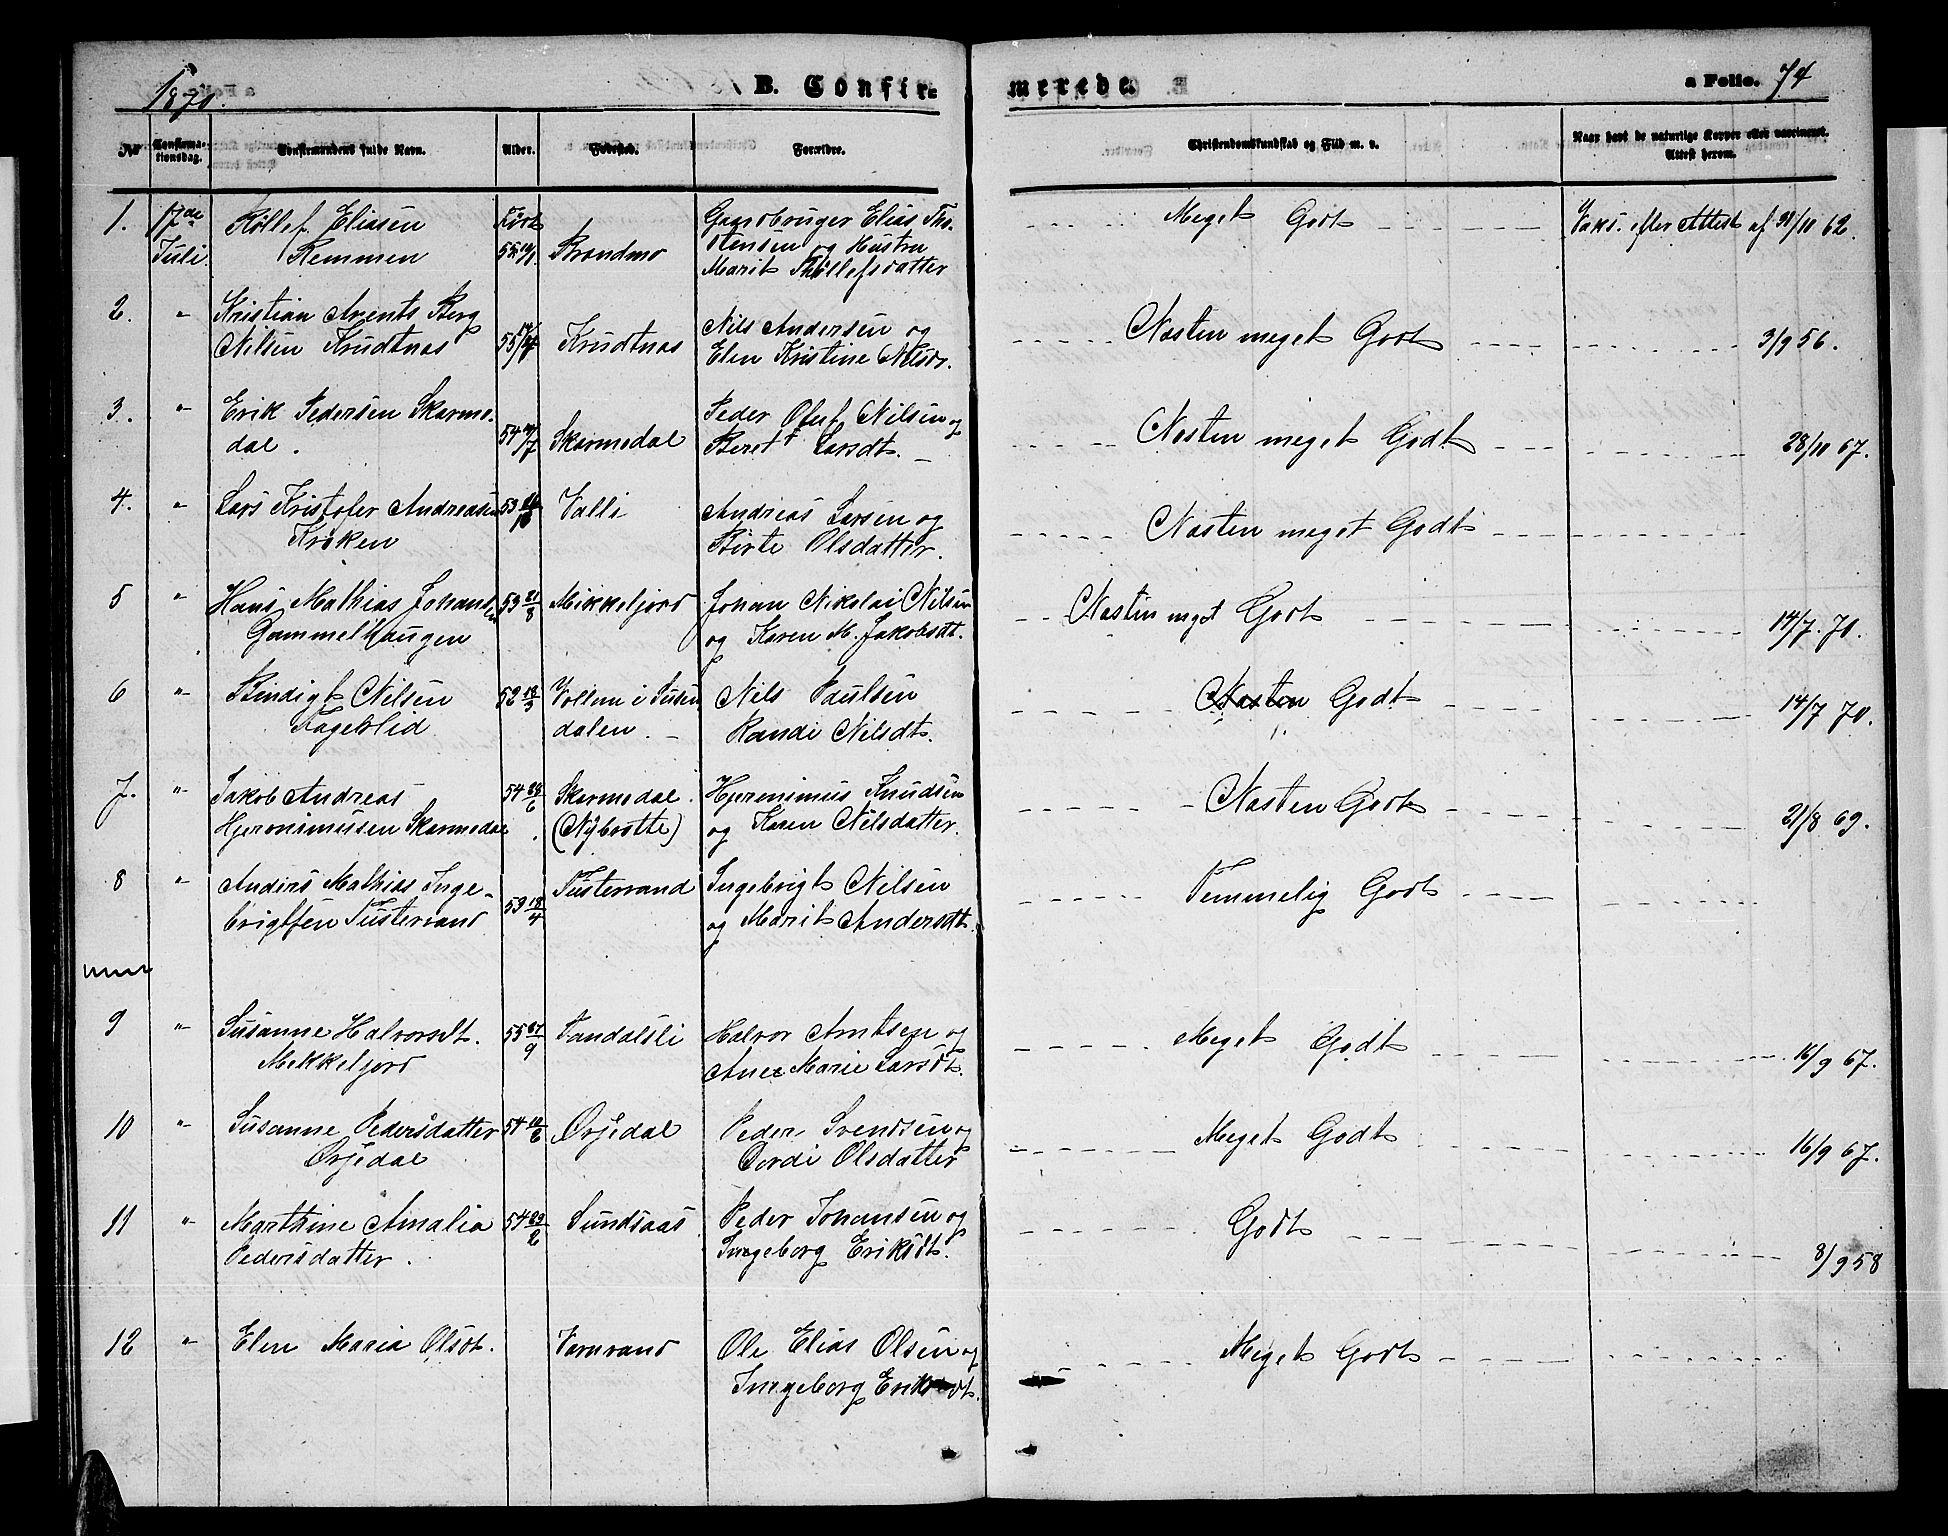 1870.
B. Confirmerede.
a Folio. 74
No
Confirmationsdag.
Confirmandens fulde Navn.
Alder.
Fødested.
Forældre.
Christendomskundskab og Flid m. v.
Naar havt de naturlige Kopper eller vaccineret. Attest herom.
1. 17de Juli
Eliasen
Remmen
Født
Brandmo
Gaardbruger Elias Tho-
stensen og Hustru
Marit Thollefsdatter
Meget Godt
Vaks. efter Attest af 31/10 62.
2. "
Kristian Arents Berg
Nilsen Krudtnæs
Krudtnæs
Nils Andersen og
Elen Kristine Nilsdr.
Næsten meget Godt
3/9 56.
3. "
Erik Pedersen Skarmo-
dal.
Skarmodal
Peder Oluf Nilsen og
Beret Larsdt.
Næsten meget Godt
28/11 67.
4. "
Lars Kristofer Andreasen
Kroken
Valli
Andreas Larsen og
Birte Olsdatter.
Næsten meget Godt
5 "
Hans Mathias Johansen
Gammelhaugen
53 21/8
Mikkeljord
Johan Nikolai Nilsen
og Karen M. Jakobsdt.
Næsten meget Godt
14/7 70.
6 "
Bendigt Nilsen
Fagerlid
Vollum i Susen
dalen.
Nils Paulsen
Randi Nilsdt.
Næsten Godt
14/7 70.
7. "
Jakob Andreas
Hjeronimusen Skarmodal
Skarmodal.
(Nybrotte)
Hjeronimus Knudsen
og Karen Nilsdatter.
Næsten Godt
21/8 69.
8 "
Anders Mathias Inge-
brigtsen Tustervand
53 18/4
Tustervand
Ingebrigt Nilsen
og Marit Andersdt.
Temmelig Godt
9 "
Susanne Halvorsdt.
Mekkeljord
Fandalsli
Halvor Arntsen og
Ane Marie Larsdt.
Meget Godt
16/9 67.
10 "
Susanne Pedersdatter
Ørjedal
Ørjedal
Peder Svendsen og
Dordi Olsdatter
Meget Godt
16/9 67.
11 "
Marthine Amalia
Pedersdatter.
54 23/2
Sundsaas
Peder Johansen og
Ingeborg Eriksdt.
Godt
8/9 58
12 "
Elen Maria Olsdt.
Varnvand
Ole Elias Olsen og
Ingeborg Eriksdt.
Meget Godt